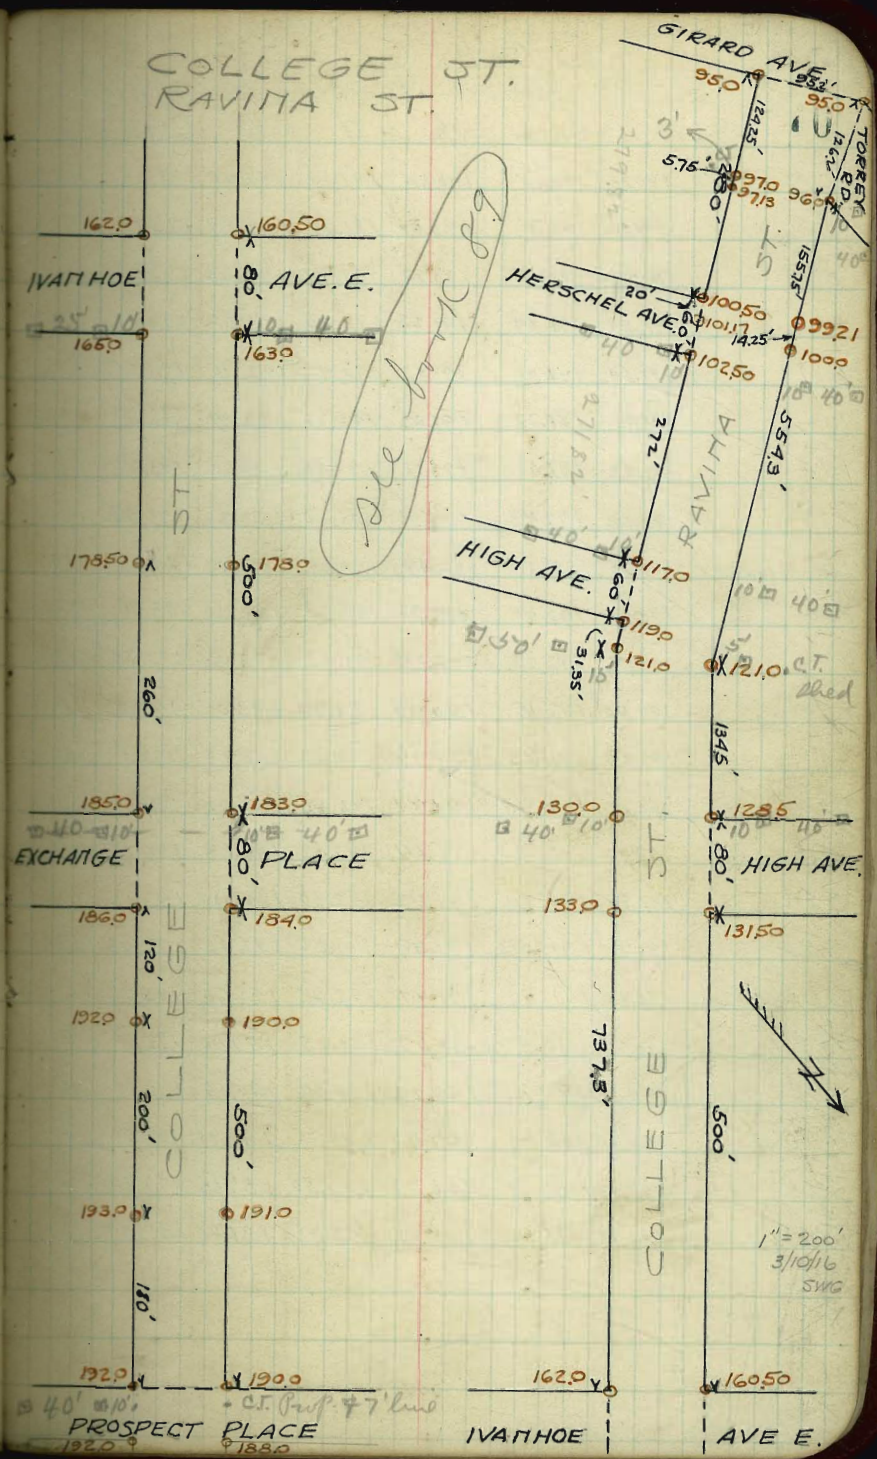 COLLEGE ST.
RAVINA ST.
see book 89
162.0
160.50
IVANHOE
80'
AVE. E.
25' 10'
10 40
165.0
163.0
ST.
178.50
178.0
500'
260'
185.0
183.0
40 10'
10' 40'
EXCHANGE
80'
PLACE
186.0
184.0
120'
COLLEGE
192.0
190.0
200'
500'
193.0
191.0
180'
192.0
190.0
40' 10'
C.T. Prop. 7' line
PROSPECT PLACE
192.0
188.0
GIRARD AVE.
95.0
95.0
10
124.25'
TORREY RD.
126.2'
3'
5.75'
97.0
97.13
280'
96.0
10
40'
ST.
155.75'
HERSCHEL AVE.
20'
100.50
101.17
60'
99.21
14.25'
102.50
100.0
40
10'
10' 40'
272'
RAVINA
554.3'
40' 10'
HIGH AVE.
117.0
60'
119.0
10' 40'
50'
15'
31.35'
121.0
5'
121.0
C.T. Shed
134.5'
130.0
128.5
40' 10'
10' 40'
ST.
80'
HIGH AVE.
133.0
131.50
N
737.3'
COLLEGE
500'
1" = 200'
3/10/16
SWG
162.0
160.50
IVANHOE AVE E.